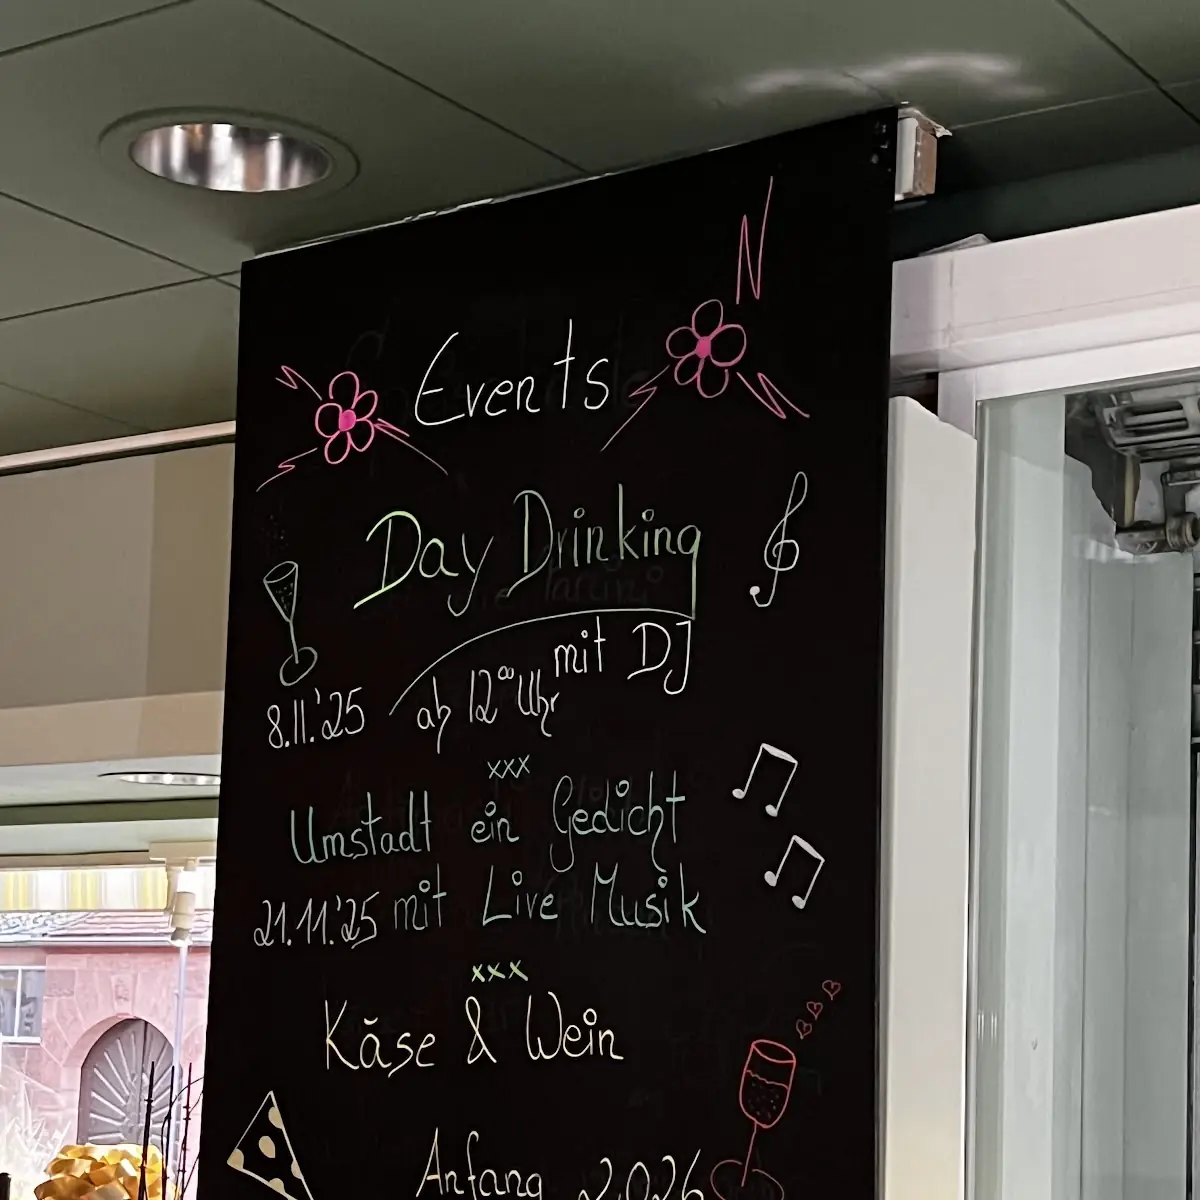 Events
Day Drinking
mit DJ
8.11.'25 ab 12⁰⁰ Uhr
xxx
Umstadt ein Gedicht
21.11.'25 mit Live Musik
xxx
Käse & Wein
Anfang 2026